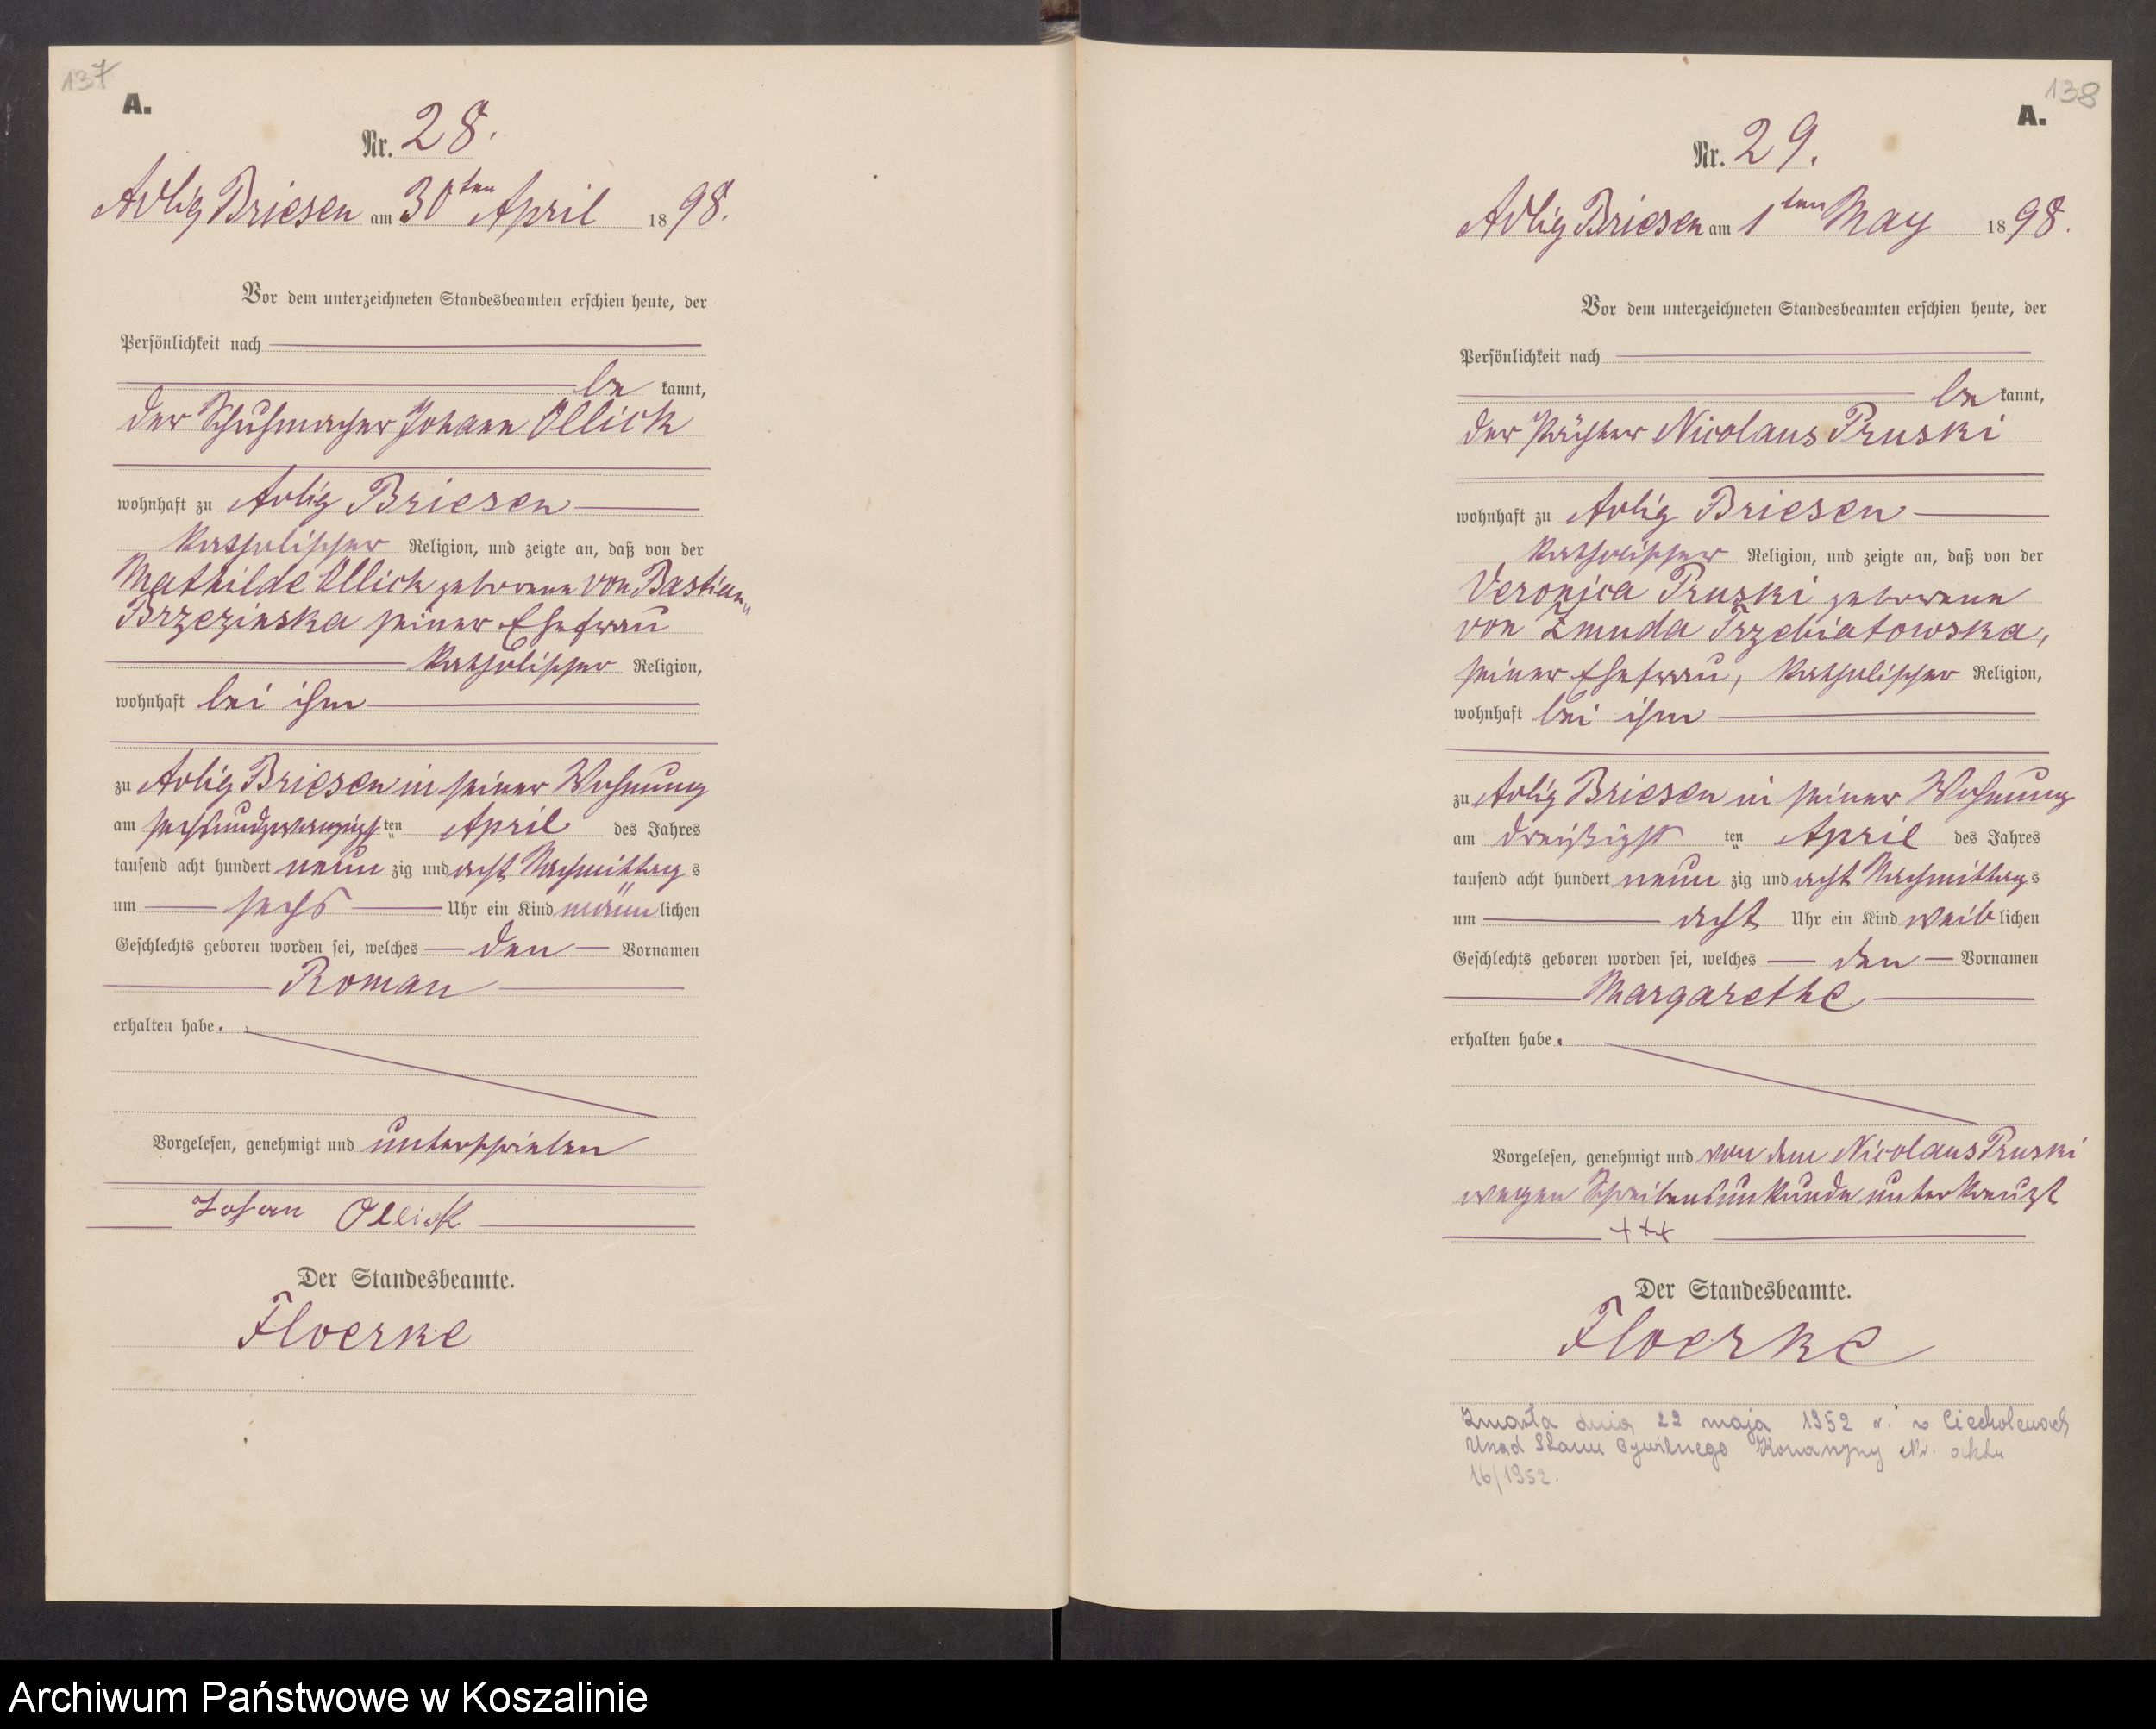 137
A.
Nr. 28.
Adlig Briesen am 30ten April 1898.
Vor dem unterzeichneten Standesbeamten erschien heute, der
Persönlichkeit nach
be kannt,
der Schuhmacher Johann Ollick
wohnhaft zu Adlig Briesen
katholischer Religion, und zeigte an, daß von der
Mathilde Ollick geborene von Bastian
Brzezinska seiner Ehefrau
katholischer Religion,
wohnhaft bei ihm
zu Adlig Briesen in seiner Wohnung
am sechsundzwanzigsten April des Jahres
tausend acht hundert neun zig und acht Nachmittags
um sechs Uhr ein Kind männlichen
Geschlechts geboren worden sei, welches den Vornamen
Roman
erhalten habe.
Vorgelesen, genehmigt und unterschrieben
Johan Ollick
Der Standesbeamte.
Floerke
138
A.
Nr. 29.
Adlig Briesen am 1ten May 1898.
Vor dem unterzeichneten Standesbeamten erschien heute, der
Persönlichkeit nach
be kannt,
der Pächter Nicolaus Pruski
wohnhaft zu Adlig Briesen
katholischer Religion, und zeigte an, daß von der
Veronica Pruski geborene
von Zmuda Trzebiatowska,
seiner Ehefrau, katholischer Religion,
wohnhaft bei ihm
zu Adlig Briesen in seiner Wohnung
am dreißigsten April des Jahres
tausend acht hundert neun zig und acht Nachmittags
um acht Uhr ein Kind weiblichen
Geschlechts geboren worden sei, welches den Vornamen
Margarethe
erhalten habe.
Vorgelesen, genehmigt und von dem Nicolaus Pruski
wegen Schreibensunkunde unterkreuzt
+++
Der Standesbeamte.
Floerke
Zmarła dnia 22 maja 1952 r. w Ciecholewach
Urząd Stanu Cywilnego Konarzyny Nr. aktu
16/1952.
Archiwum Państwowe w Koszalinie